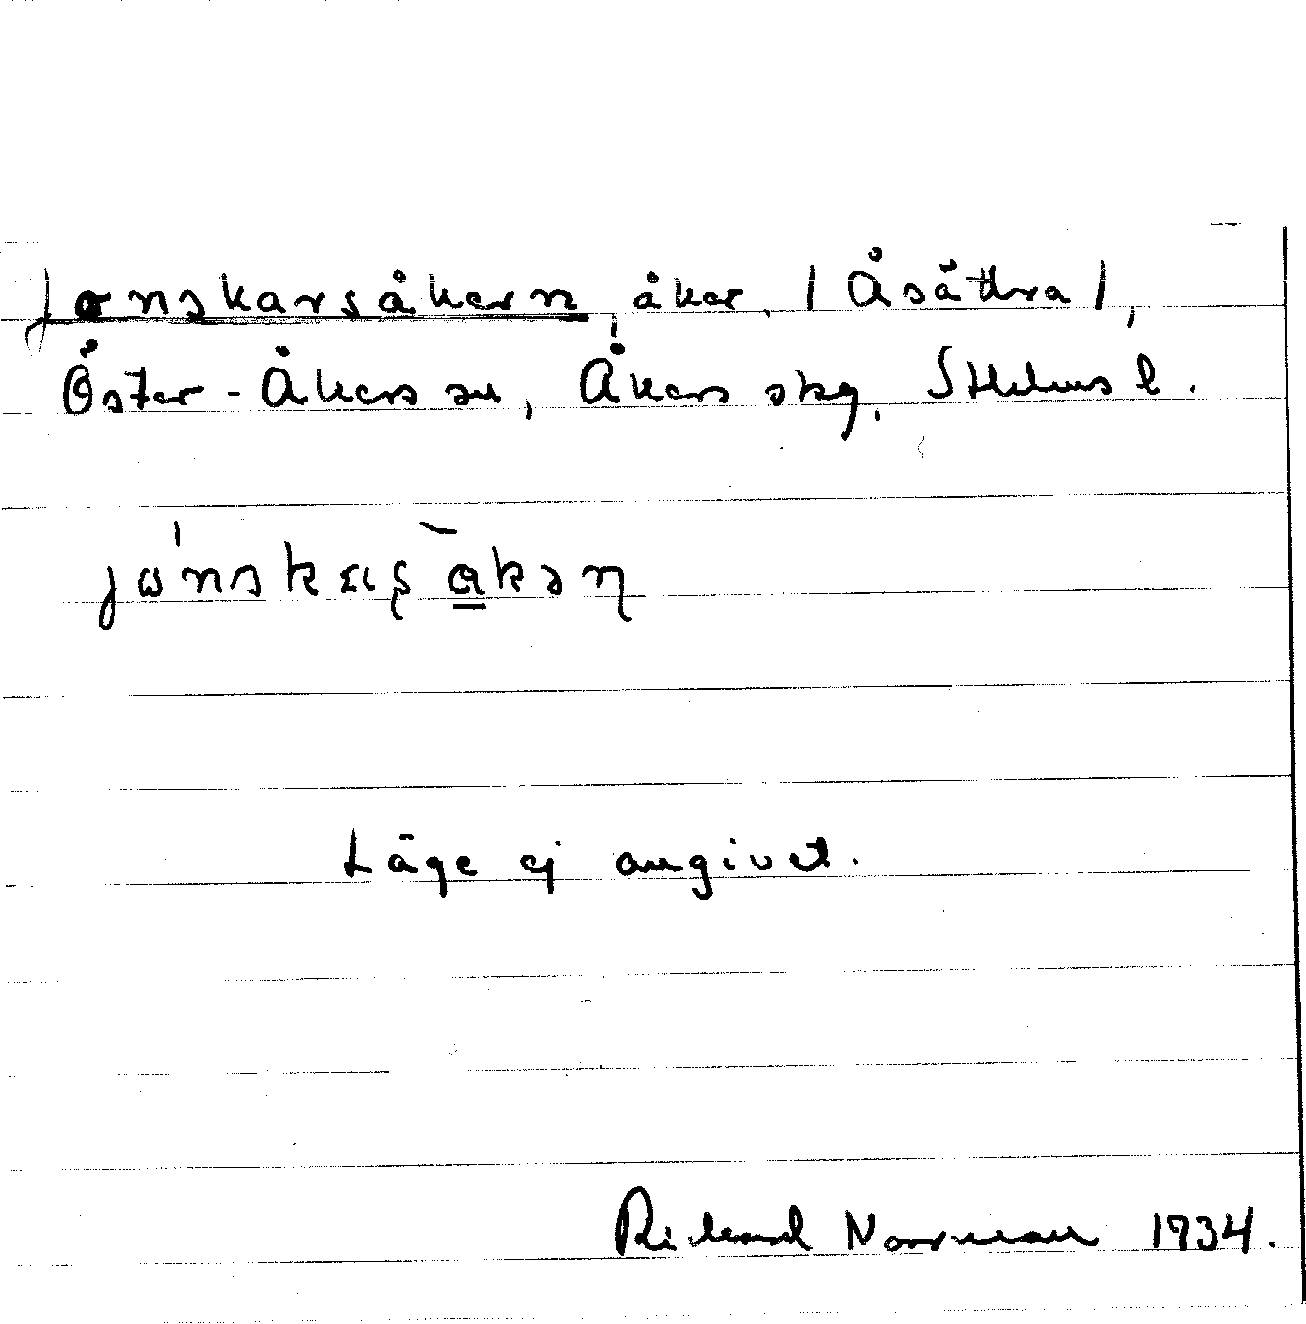 Jonskarsåkern, åker, (Åsättra),
Öster-Åkers sn, Åkers skg, Sthlms l.
jω'nskaʂ`ɑ̲kəɳ
Läge ej angivet.
Rickard Norrman 1934.